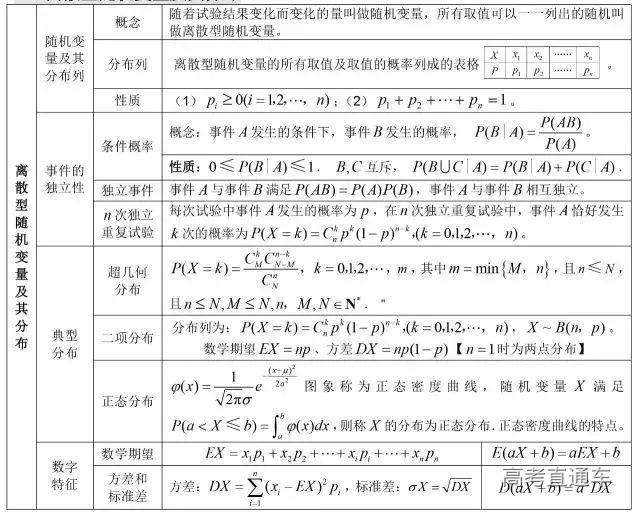 离散型随机变量及其分布
随机变量及其分布列
概念
随着试验结果变化而变化的量叫做随机变量，所有取值可以一一列出的随机叫
做离散型随机变量。
分布列
离散型随机变量的所有取值及取值的概率列成的表格
X x₁ x₂ …… xₙ
P p₁ p₂ …… pₙ
。
性质
（1）pᵢ≥0(i=1,2,…, n)；（2）p₁+p₂+…+pₙ=1。
事件的独立性
条件概率
概念：事件A发生的条件下，事件B发生的概率，P(B|A)=P(AB)/P(A)。
性质：0≤P(B|A)≤1. B,C互斥，P(B∪C|A)=P(B|A)+P(C|A).
独立事件
事件A与事件B满足P(AB)=P(A)P(B)，事件A与事件B相互独立。
n次独立重复试验
每次试验中事件A发生的概率为p，在n次独立重复试验中，事件A恰好发生
k次的概率为P(X=k)=Cₙᵏpᵏ(1-p)ⁿ⁻ᵏ,(k=0,1,2,…, n)。
典型分布
超几何分布
P(X=k)=C_M^k C_{N-M}^{n-k}/C_N^n，k=0,1,2,…,m,其中m=min{M, n},且n≤N，
且n≤N,M≤N,n，M,N∈N*. "
二项分布
分布列为：P(X=k)=Cₙᵏpᵏ(1-p)ⁿ⁻ᵏ,(k=0,1,2,…, n)，X~B(n, p)。
数学期望EX=np、方差DX=np(1-p)【n=1时为两点分布】
正态分布
φ(x)=1/(√2πσ) e^{-(x-μ)²/2a²} 图象称为正态密度曲线，随机变量X满足
P(a<X≤b)=∫ₐᵇφ(x)dx,则称X的分布为正态分布.正态密度曲线的特点。
数字特征
数学期望
EX=x₁p₁+x₂p₂+…+xᵢpᵢ+…+xₙpₙ
E(aX+b)=aEX+b
方差和标准差
方差：DX=∑_{i=1}^{n}(xᵢ-EX)²pᵢ,标准差：σX=√DX
D(aX+b)=a²DX
高考直通车